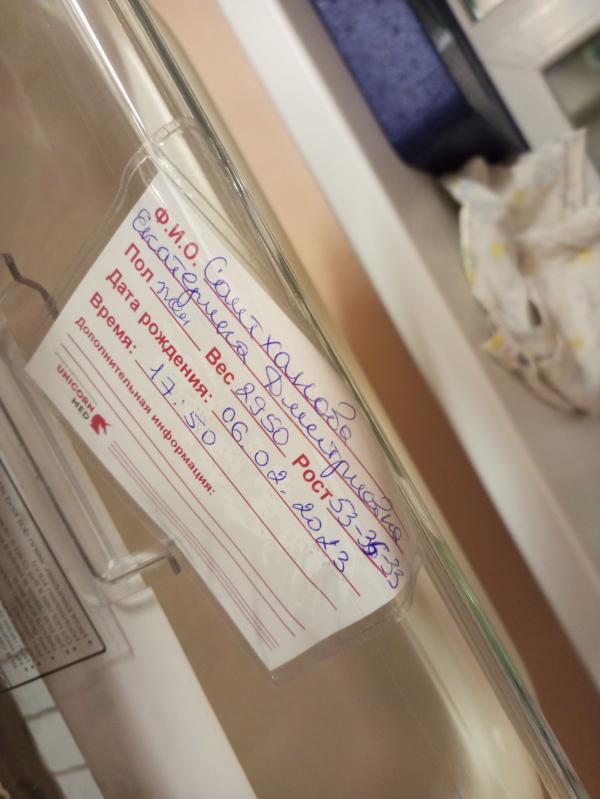 Ф.И.О. Саитханова
Екатерина Дмитриевна
Пол жен Вес 2950 Рост 53-35-33
Дата рождения: 06.02.2023
Время: 17:50
Дополнительная информация:
UNICORN
MED